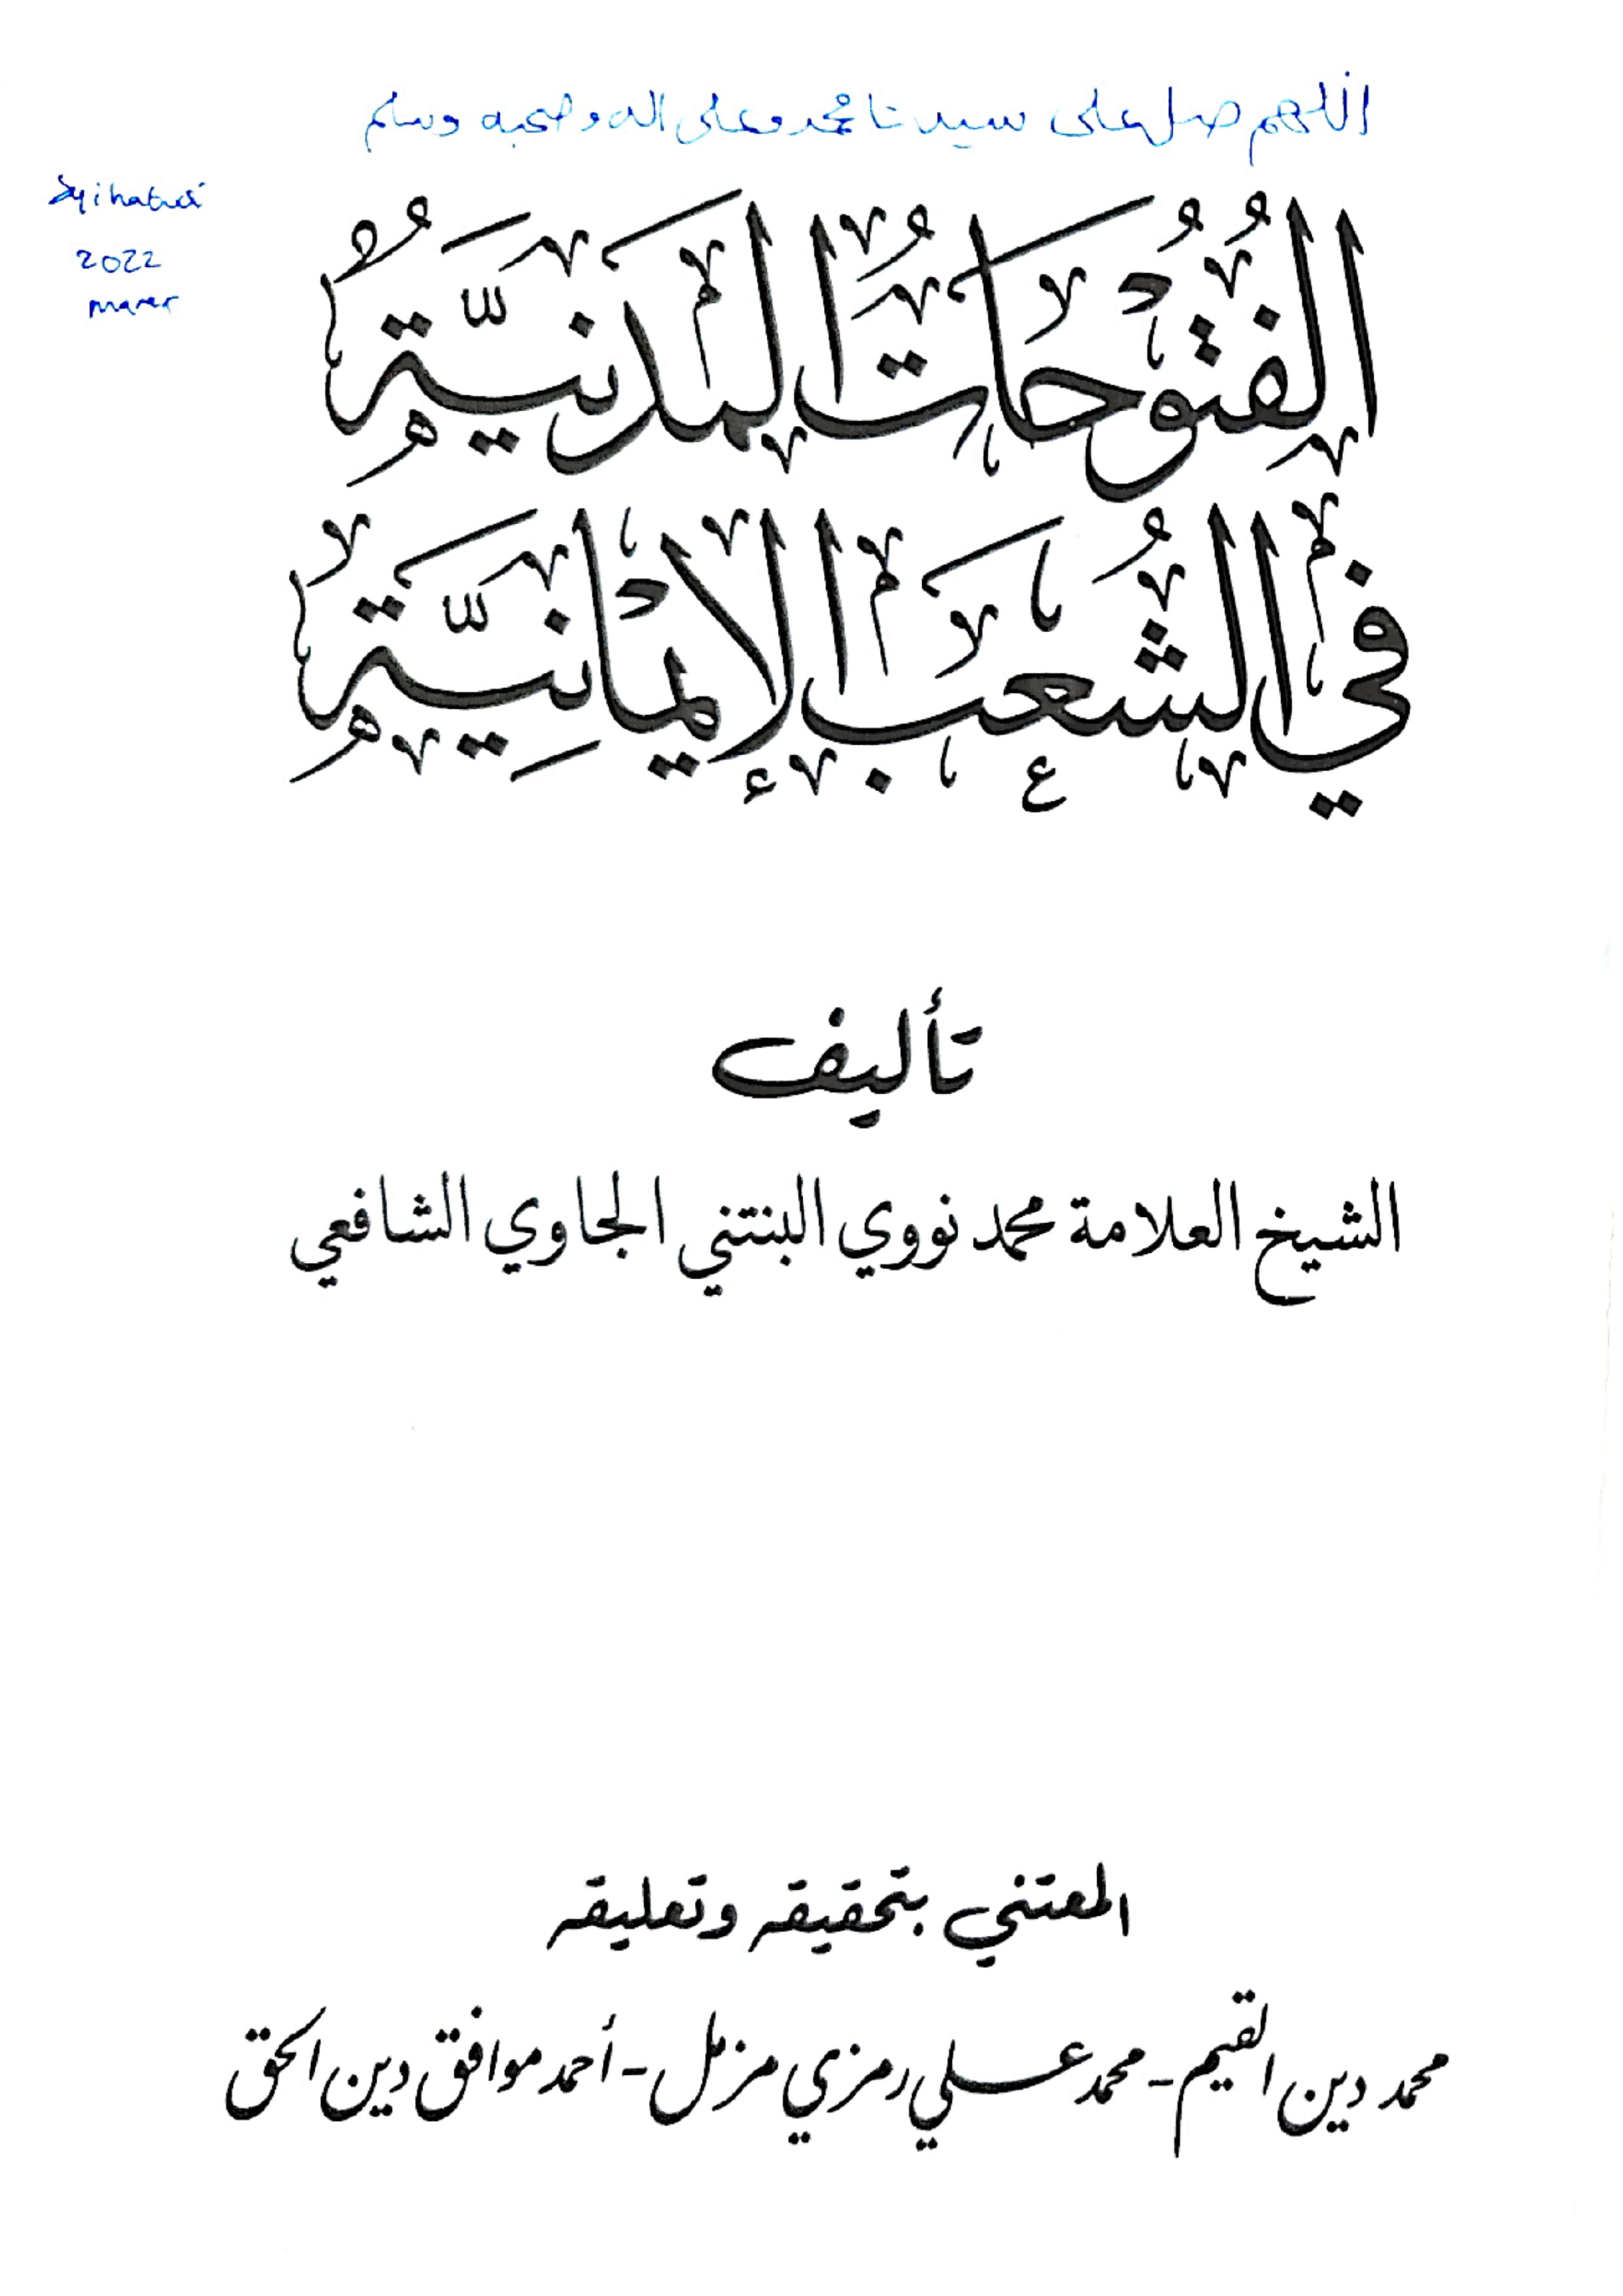 اللهم صل على سيدنا محمد وعلى اله وصحبه وسلم
2022
الفُتُوحَاتُ المَدَنِيَّةُ
فِي الشُّعَبِ الإِيمَانِيَّةِ
تأليف
الشيخ العلامة محمد نووي البنتني الجاوي الشافعي
المعتني بتحقيقه وتعليقه
محمد دين القيم - محمد علي رمزي مزمل - أحمد موافق دين الحق